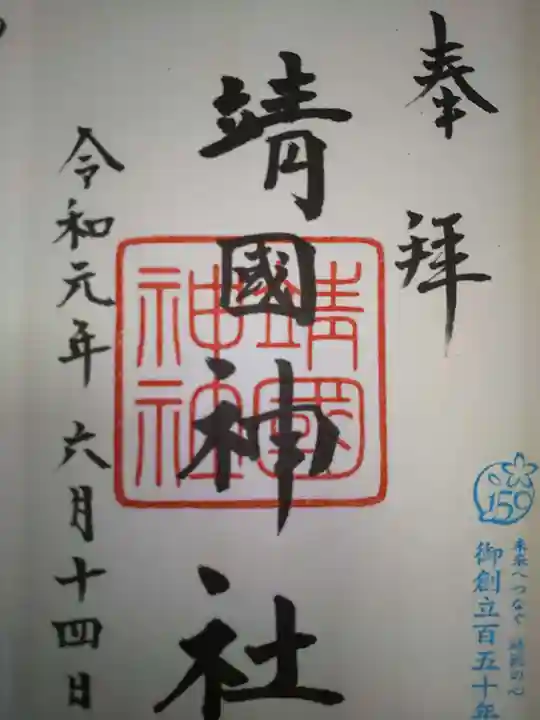 奉拝
150
未来へつなぐ 靖國の心
御創立百五十年
靖國神社
靖國神社
令和元年六月十四日